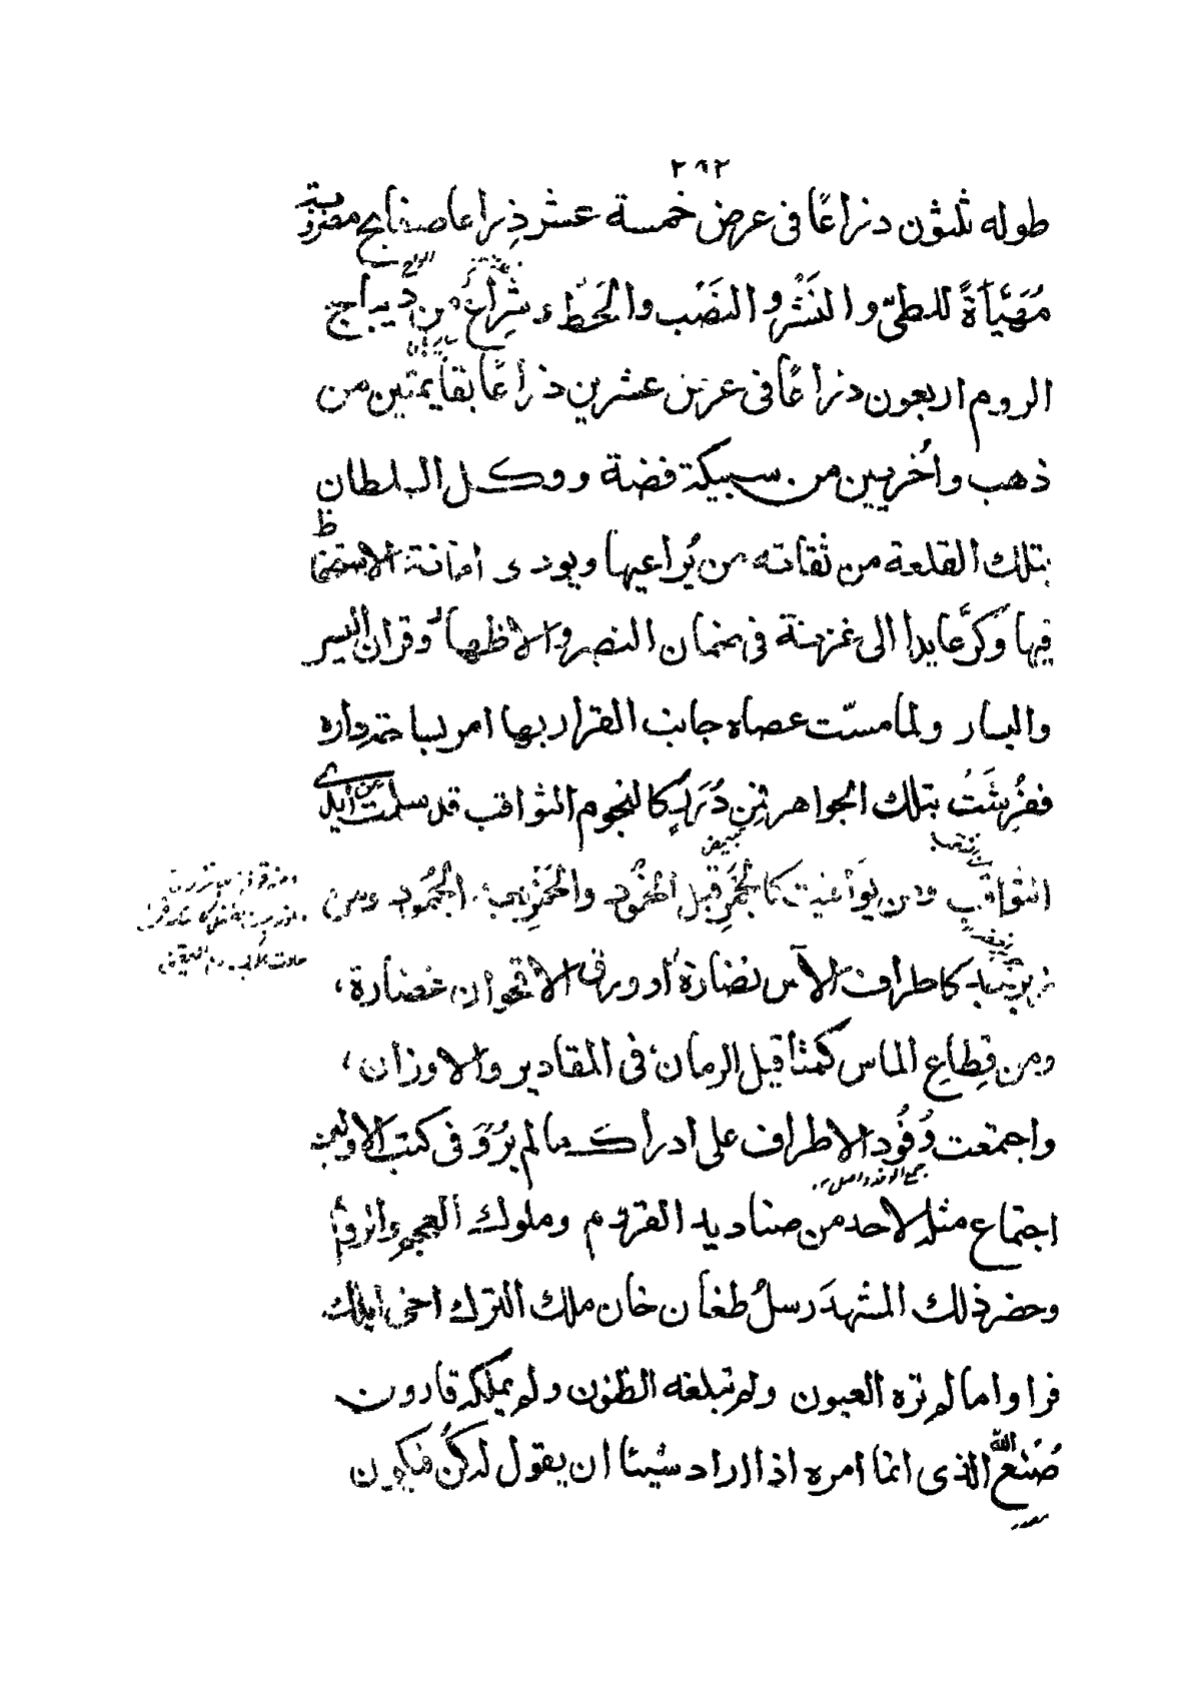 ٢٩٢
طوله ثلثون ذراعًا فى عرض خمسة عشر ذِراعا صفايح مضروبة
مُهَيَّأةً للطىّ والنَشْر والنَصْب والحَطّ وشِراعٌ من دِيباج
الروم اربعون ذراعًا فى عرض عشرين ذراعًا بقايمتين من
ذهب واُخريين من سبيكة فضة ووكل السلطان
بتلك القلعة من ثقاته من يُراعيها ويودى امانة الاستحفاظ
فيها وكرَّ عايدا الى غزنة فى ضمان النصر والاظهار وقران اليسر
واليسار ولما مسّت عصاه جانب القرار بها امر بساحة داره
ففُرِشَتْ بتلك الجواهر مِن دُرَرٍ كالنجوم الثواقب قد سلمت عن ايدى
الثواقب ومن يواقيت كالجَمْر قبل الخمُود والخَمْر بعد الجُمُود ومن
زبرجد كاطراف الآس نضارة او ورق الاقحوان غضارة،
ومن قِطاعِ الماس كمثاقيل الرمان فى المقادير والاوزان،
واجتمعت وُفُود الاطراف على ادراك ما لم يُرْوَ فى كتب الاولين
جمع الوفد
اجتماع مثله لاحد من صناديد القروم وملوك العجم والروم
وحضر ذلك المشهدَ رسلُ طغان خان ملك الترك اخى ايلك
فراوا ما لم تره العيون ولم تبلغه الظنون ولم يملكه قارون
صُنْعُ الله الذى انما امره اذا اراد شيئا ان يقول له كن فيكون